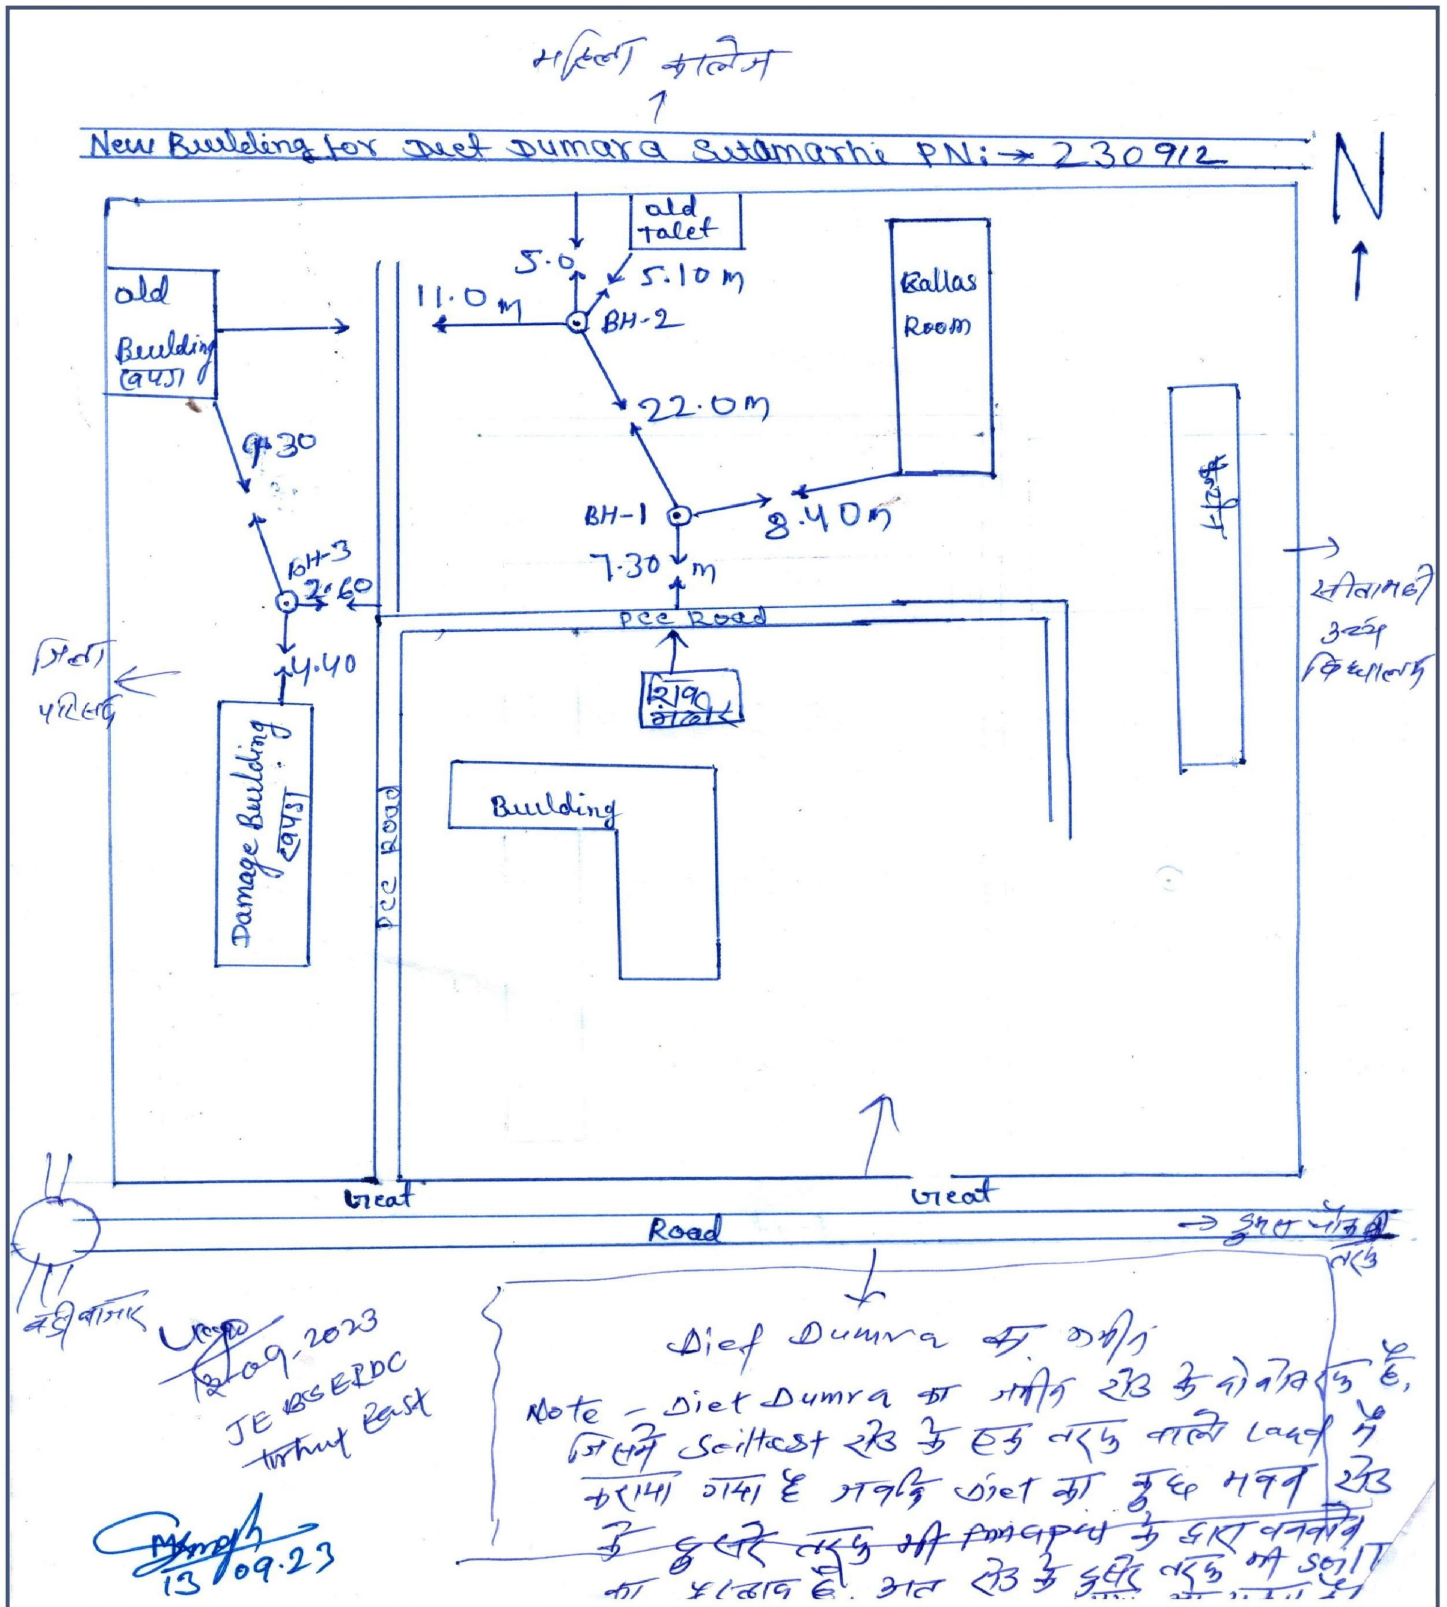 महिला कालेज
New Building for Diet Dumara Sitamarhi PN:→ 230912
N
old
Talet
5.0
5.10 m
11.0 m
BH-2
Kallas
Room
old
Building
खपड़ा
22.0m
9.30
BH-1
8.40m
7.30 m
BH-3
2.60
PCC Road
सीतामढी
उच्च
विधालय
जिला
परिसद
4.40
Damage Building
खपड़ा
PCC ROad
Building
Geat
Geat
Road
→ डुमरा
तरफ
12.09.2023
JE BSEIDC
tirhut East
13/09.23
Dief Dumra का जमीन
Note - Diet Dumra का जमीन रोड के दोनो तरफ है,
जिसमें Soiltest रोड के एक तरफ वाले Land में
कराया गया है जबकि Diet का कुछ भवन रोड
के दुसरे तरफ भी Principal के द्वारा बनवाने
का प्रस्ताव है. अत रोड के दुसरे तरफ भी Soil